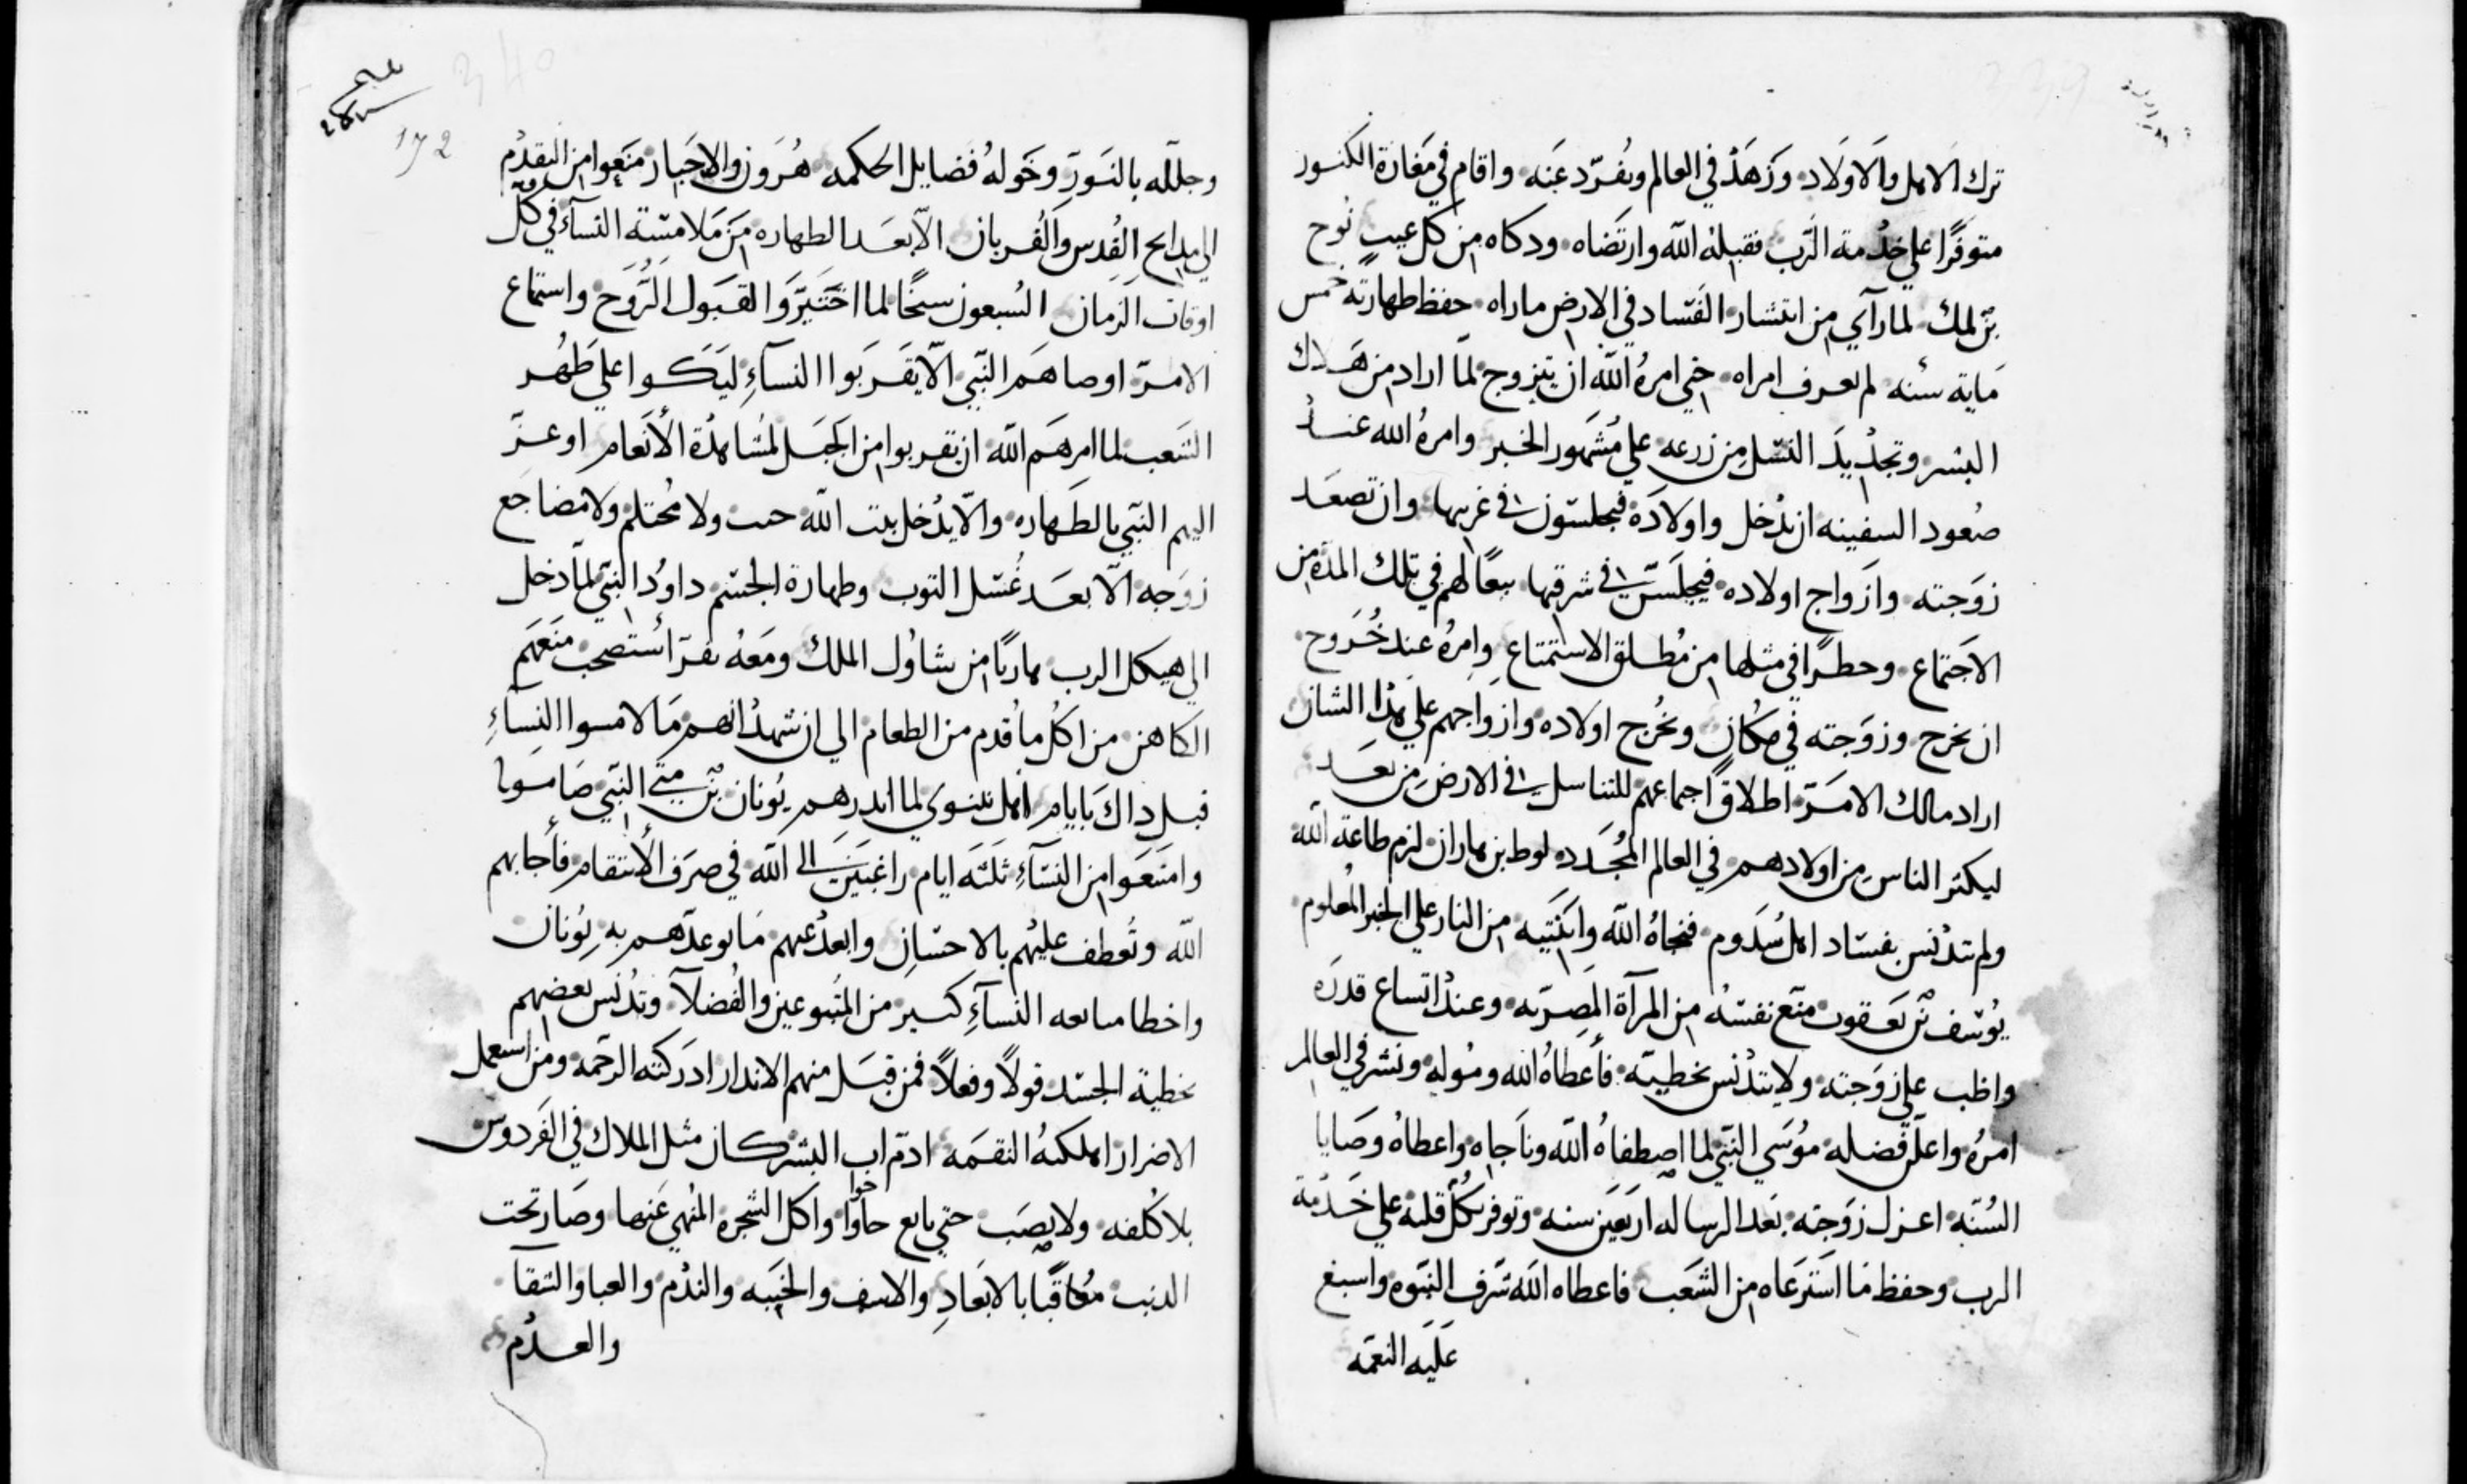 ترك الاهل والاولاد وزهد في العالم وتفرد عنه واقام في مغارة الكنوز
متوفرا علي خدمة الرب فقبله الله وارتضاه ودكاه من كل عيب نوح
بن لمك لما رآي من انتشار الفساد في الارض ماراه حفظ طهارته خمس
ماية سنه لم يعرف امراه حتي امره الله ان يتزوج لما اراد من هلاك
البشر وتجديد النسل من زرعه علي مشهور الخبر وامره الله عند
صعود السفينه ان يدخل واولاده فيجلسون في غربها وان تصعد
زوجته وازواج اولاده فيجلسن في شرقها منعا لهم في تلك المده من
الاجتماع وحطرا في مثلها من مطلق الاستمتاع وامره عند خروج
ان يخرج وزوجته في مكان ويخرج اولاده وازواجهم علي هذا الشان
اراد مالك الامر اطلاق اجماعهم للتناسل في الارض من بعد
ليكثر الناس من اولادهم في العالم المجدد لوط بن هاران لزم طاعة الله
ولم يتدنس بفساد اهل سدوم فنجاه الله وابنتيه من النار علي الخبر المعلوم
يوسف بن يعقوب منع نفسه من المرآة المصريه وعند اتساع قدره
واظب علي زوجته ولا يتدنس بخطيه فأعطاه الله وموله ونشر في العالم
امره واعلن فضله موسي النبي لما اصطفاه الله وناجاه واعطاه وصايا
السنه اعزل زوجته بعد الرساله اربعين سنه وتوفر بكل قلبه علي خدمة
الرب وحفظ ما استرعاه من الشعب فاعطاه الله شرف النبوه واسبغ
عليه النعمه
340
172
وجلله بالنور وخوله فضايل الحكمه هرون والاحبار منعوا من التقدم
الي مدابح القدس والقربان الا بعد الطهاره من ملامسة النسآء في كل
اوقات الزمان السبعون سيخا لما اختيروا لقبول الروح واستماع
الامر اوصاهم النبي الا يقربوا النسآء ليكوا علي طهر
الشعب لما امرهم الله ان يقربوا من الجبل لمشاهدة الأنعام اوعز
اليهم النبي بالطهاره والا يدخل بيت الله جنب ولا محتلم ولا مضاجع
زوجه الا بعد غسل التوب وطهارة الجسم داود النبي لما دخل
الي هيكل الرب هاربا من شاول الملك ومعه نفر استصحب منعهم
الكاهن من اكل ما قدم من الطعام الي ان شهد انهم ما لامسوا النسآء
قبل داك بايام اهل نينوي لما اندرهم يونان بن متي النبي صاموا
وامتنعوا من النسآء ثلثه ايام راغبين الي الله في صرف الأنتقام فأجابهم
الله وتعطف عليهم بالاحسان وابعد عنهم ما توعدهم به يونان
واخطا متابعه النسآء كثير من المتبوعين والفضلآ وتدنس بعضهم
بخطية الجسد قولا وفعلا فمن قبل منهم الاندار ادركته الرحمه ومن استعمل
الاضرار اهلكته النقمه ادم اب البشر كان مثل الملاك في الفردوس
بلا كلفه ولا نصب حتي تابع حاوا واكل الشجره المنهي عنها وصار تحت
الدنب معاقبا بالابعاد والاسف والخيبه والندم والعبا والشقآ
والعدم